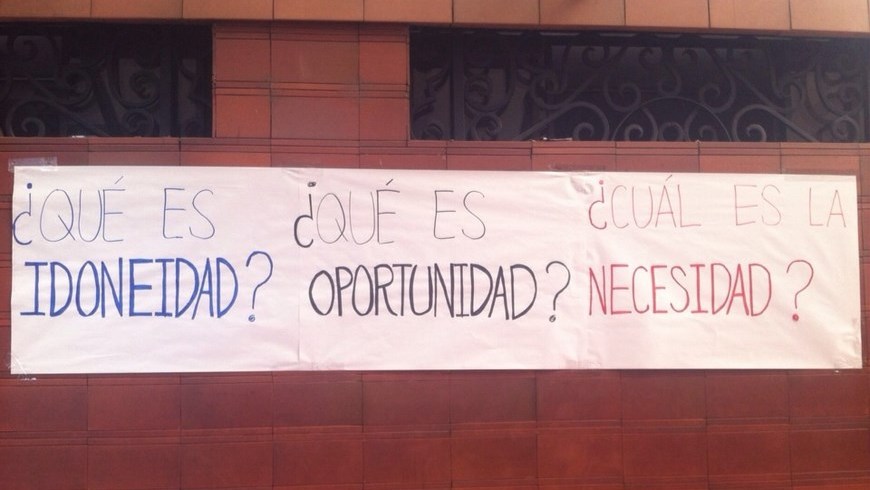 ¿QUÉ ES
IDONEIDAD?
¿QUÉ ES
OPORTUNIDAD?
¿CUÁL ES LA
NECESIDAD?